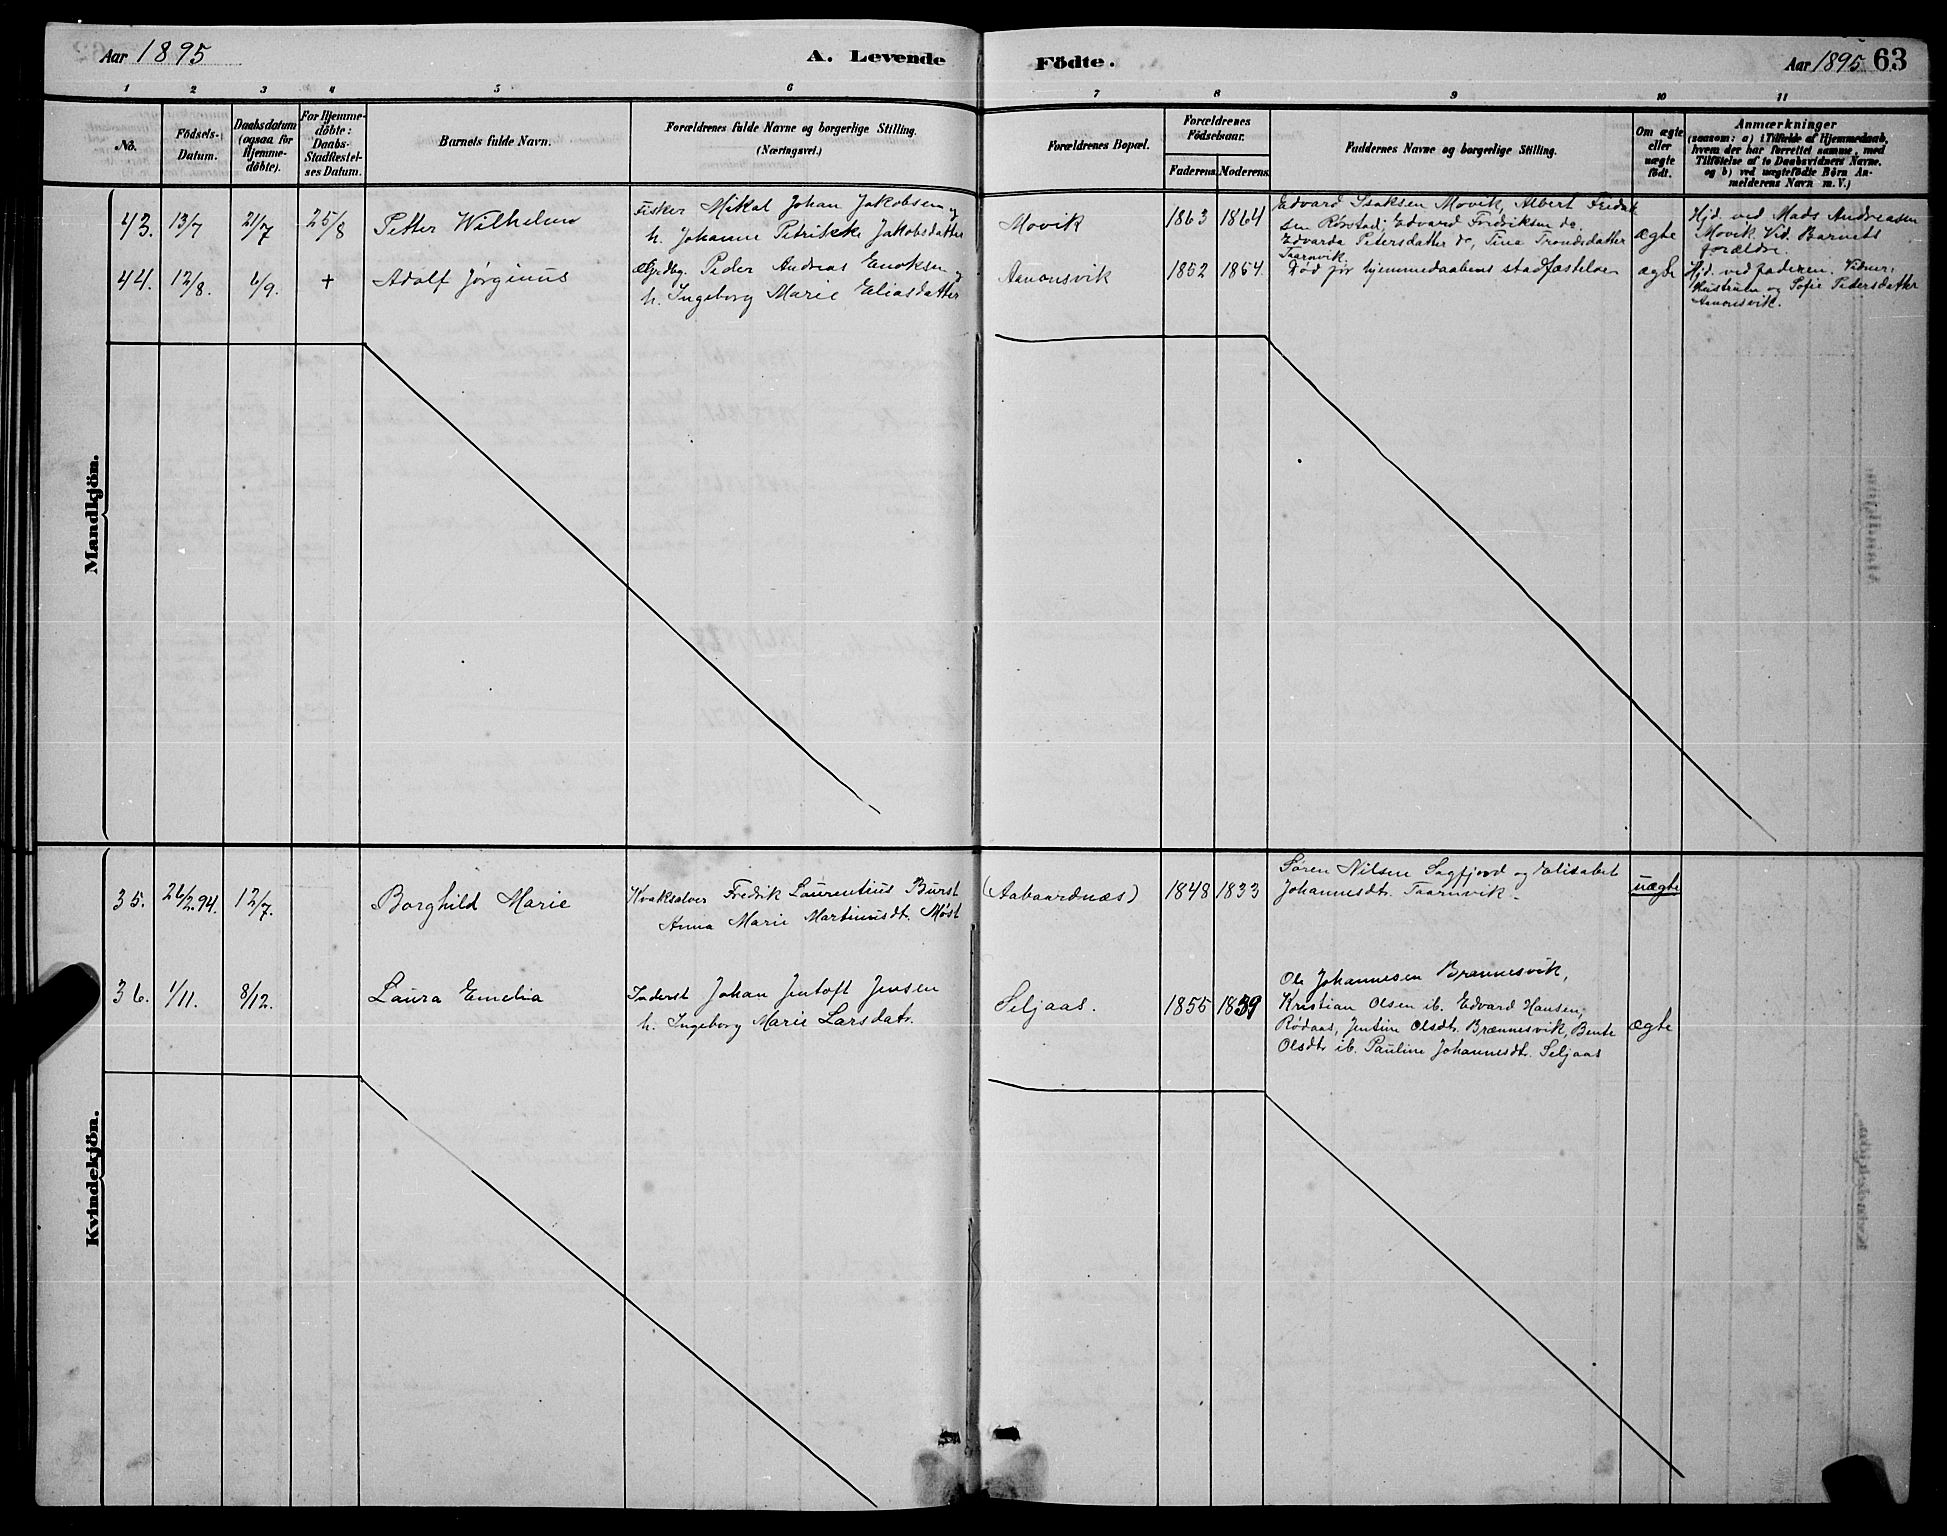 Aar 1895
A. Levende Födte.
Aar 1895 63
1 2 3 4 5 6 7 8 9 10 11
No.
Födsels-
Datum.
Daabsdatum
(ogsaa for
Hjemme-
döbte).
For Hjemme-
döbte:
Daabs-
Stadfestel-
ses Datum.
Barnets fulde Navn.
Forældrenes fulde Navne og borgerlige Stilling.
(Næringsvei.)
Forældrenes Bopæl.
Forældrenes
Födselsaar.
Faderens. Moderens.
Faddernes Navne og borgerlige Stilling.
Om ægte
eller
uægte
födt.
Anmærkninger
(saasom: a) i Tilfælde af Hjemmedaab,
hvem der har forrettet samme, med
Tilföielse af to Daabsvidners Navne,
og b) ved uægtefödte Börn An-
melderens Navn m. V.)
Mandkjön.
43. 13/7 21/7 25/8 Petter Wilhelm
Fisker Mikal Johan Jakobsen og
h. Johanne Petrikke Jakobsdatter
Movik 1863 1864
Edvard Isaksen Movik, Albert Fredrik
sen Robstad, Edvard Fredriksen do,
Edvarda Petersdatter do, Tina Trondsdatter
Taarnvik.
ægte
Hjd. ved Mads Andreasen
Movik. Vid. Barnets
forældre.
44. 12/8. 6/9. + Adolf Jørginus
Peder Andreas Enoksen og
h. Ingeborg Marie Eliasdatter
Aanonsvik 1852 1854.
Død før hjemmedaabens stadfæstelse
ægte
Hjd. ved faderen. Vidner:
Hustruen og Sofie Pedersdatter
Aanonsvik.
Kvindekjön.
35. 26/2.94. 12/7. Borghild Marie
Kvaksalver Fredrik Laurentius Burst
Anna Marie Martinusdt. Møst
(Aabaardnæs) 1848 1833
Søren Nilsen Sagfjord og Elisabet
Johannesdtr. Taarnvik.
uægte
36. 1/11. 8/12. Laura Emelia
Inderst Johan Jentoft Jensen
h. Ingeborg Marie Larsdatr.
Seljaas. 1855 1859
Ole Johannesen Brænnesvik,
Kristian Olsen ib. Edvard Hansen,
Rødaas, Jentine Olsdtr. Brænnesvik, Bente
Olsdtr ib. Pauline Johannesdtr. Seljaas
ægte